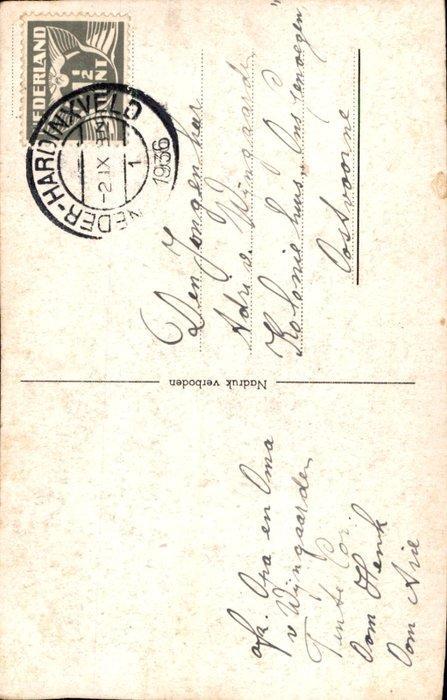 afz. Opa en Oma
v Wijngaarden
Tante Cor
Oom Henk
Oom Arie
Nadruk verboden
NEDERLAND
1½ CENT
NEDER-HARDINXVELD
-2 IX
1936
1
Den Jongen heer
Adri v. Wijngaarden
Kolonie huis Ons Genoegen
Oostvoorne